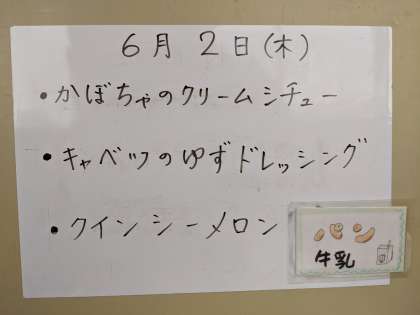 6月 2日(木)
・かぼちゃのクリームシチュー
・キャベツのゆずドレッシング
・クインシーメロン
パン
牛乳